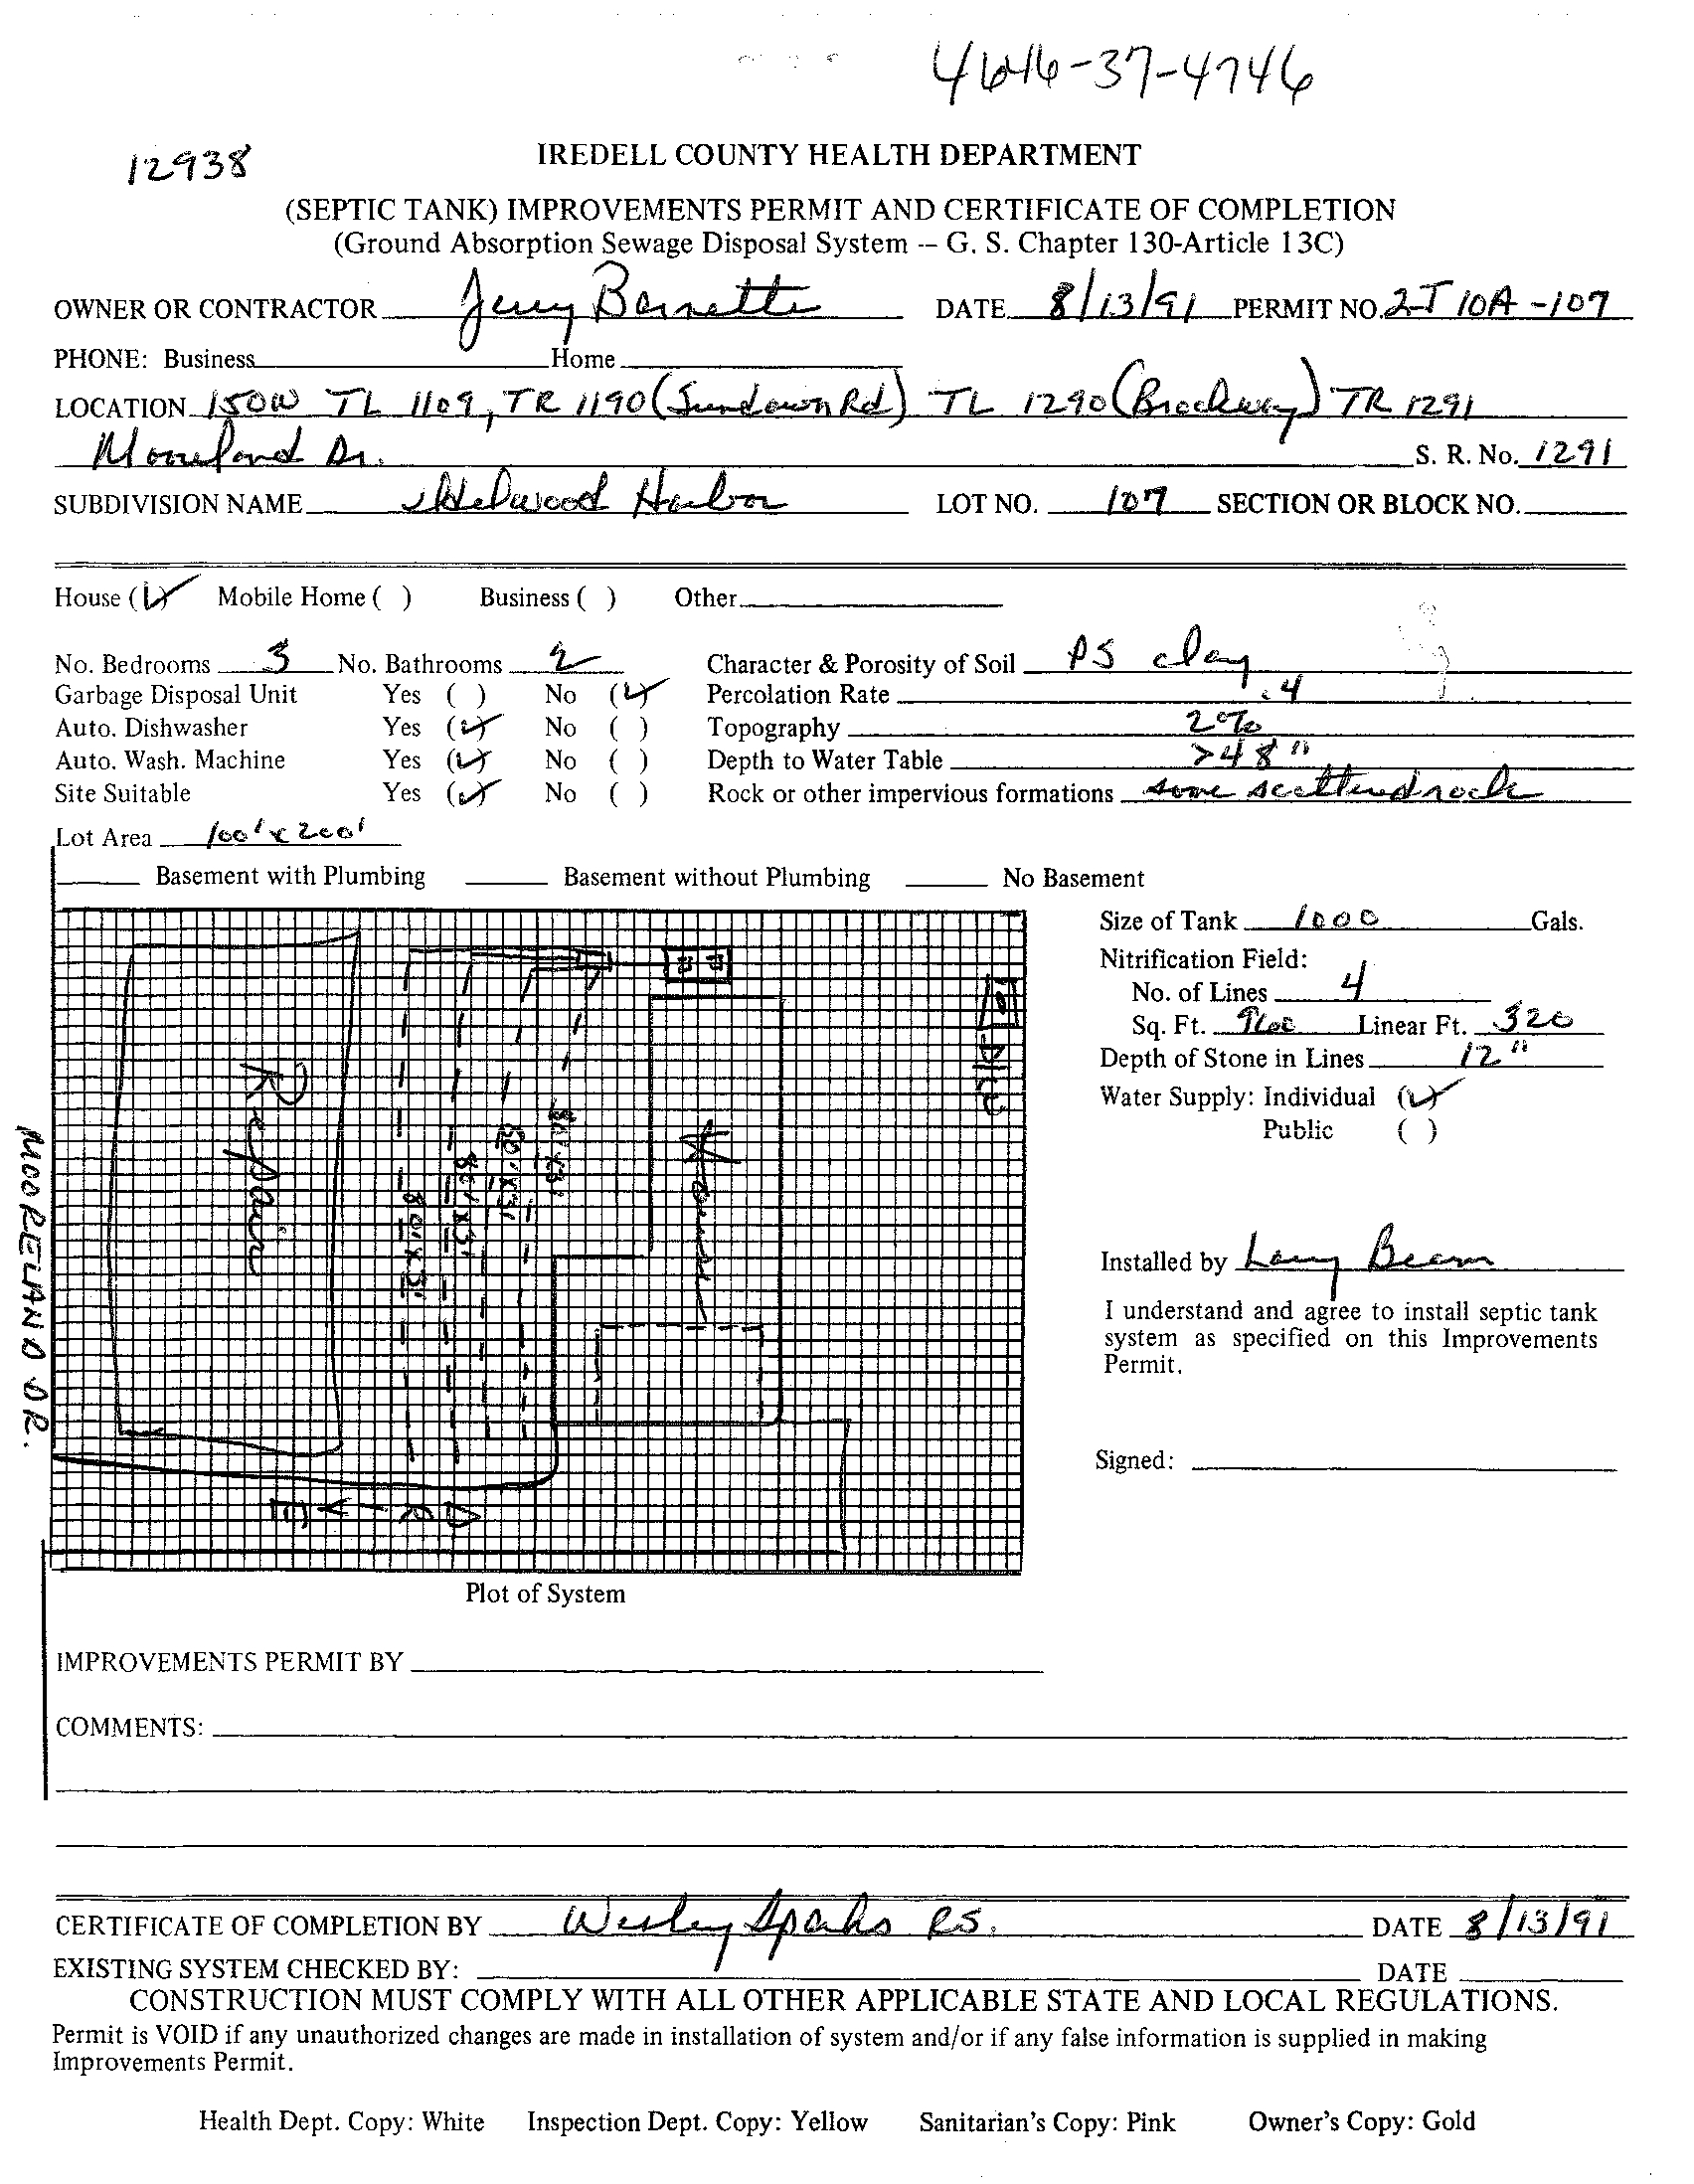 4646-37-4746
12938
IREDELL COUNTY HEALTH DEPARTMENT
(SEPTIC TANK) IMPROVEMENTS PERMIT AND CERTIFICATE OF COMPLETION
(Ground Absorption Sewage Disposal System -- G. S. Chapter 130-Article 13C)
OWNER OR CONTRACTOR Jerry Barnette DATE 8/13/91 PERMIT NO. 2J 10A -107
PHONE: Business Home
LOCATION 150W TL 1109, TR 1190 (Sundown Rd) TL 1290 (Brockway) TR 1291
Mooreland Dr. S. R. No. 1291
SUBDIVISION NAME Harbor LOT NO. 107 SECTION OR BLOCK NO.
House (✓) Mobile Home ( ) Business ( ) Other
No. Bedrooms 3 No. Bathrooms 2 Character & Porosity of Soil PS clay
Garbage Disposal Unit Yes ( ) No (✓) Percolation Rate .4
Auto. Dishwasher Yes (✓) No ( ) Topography 2%
Auto. Wash. Machine Yes (✓) No ( ) Depth to Water Table >48"
Site Suitable Yes (✓) No ( ) Rock or other impervious formations some scattered rock
Lot Area 100' x 200'
Basement with Plumbing Basement without Plumbing No Basement
Size of Tank 1000 Gals.
Nitrification Field:
No. of Lines 4
Sq. Ft. 960 Linear Ft. 320
Depth of Stone in Lines 12"
Water Supply: Individual (✓)
Public ( )
Repair
80'x3'
80'x3'
80'x3'
80'x3'
House
MOORELAND DR.
Installed by Larry Beam
I understand and agree to install septic tank
system as specified on this Improvements
Permit.
Signed:
Plot of System
IMPROVEMENTS PERMIT BY
COMMENTS:
CERTIFICATE OF COMPLETION BY Wesley Sparks R.S. DATE 8/13/91
EXISTING SYSTEM CHECKED BY: DATE
CONSTRUCTION MUST COMPLY WITH ALL OTHER APPLICABLE STATE AND LOCAL REGULATIONS.
Permit is VOID if any unauthorized changes are made in installation of system and/or if any false information is supplied in making
Improvements Permit.
Health Dept. Copy: White Inspection Dept. Copy: Yellow Sanitarian's Copy: Pink Owner's Copy: Gold